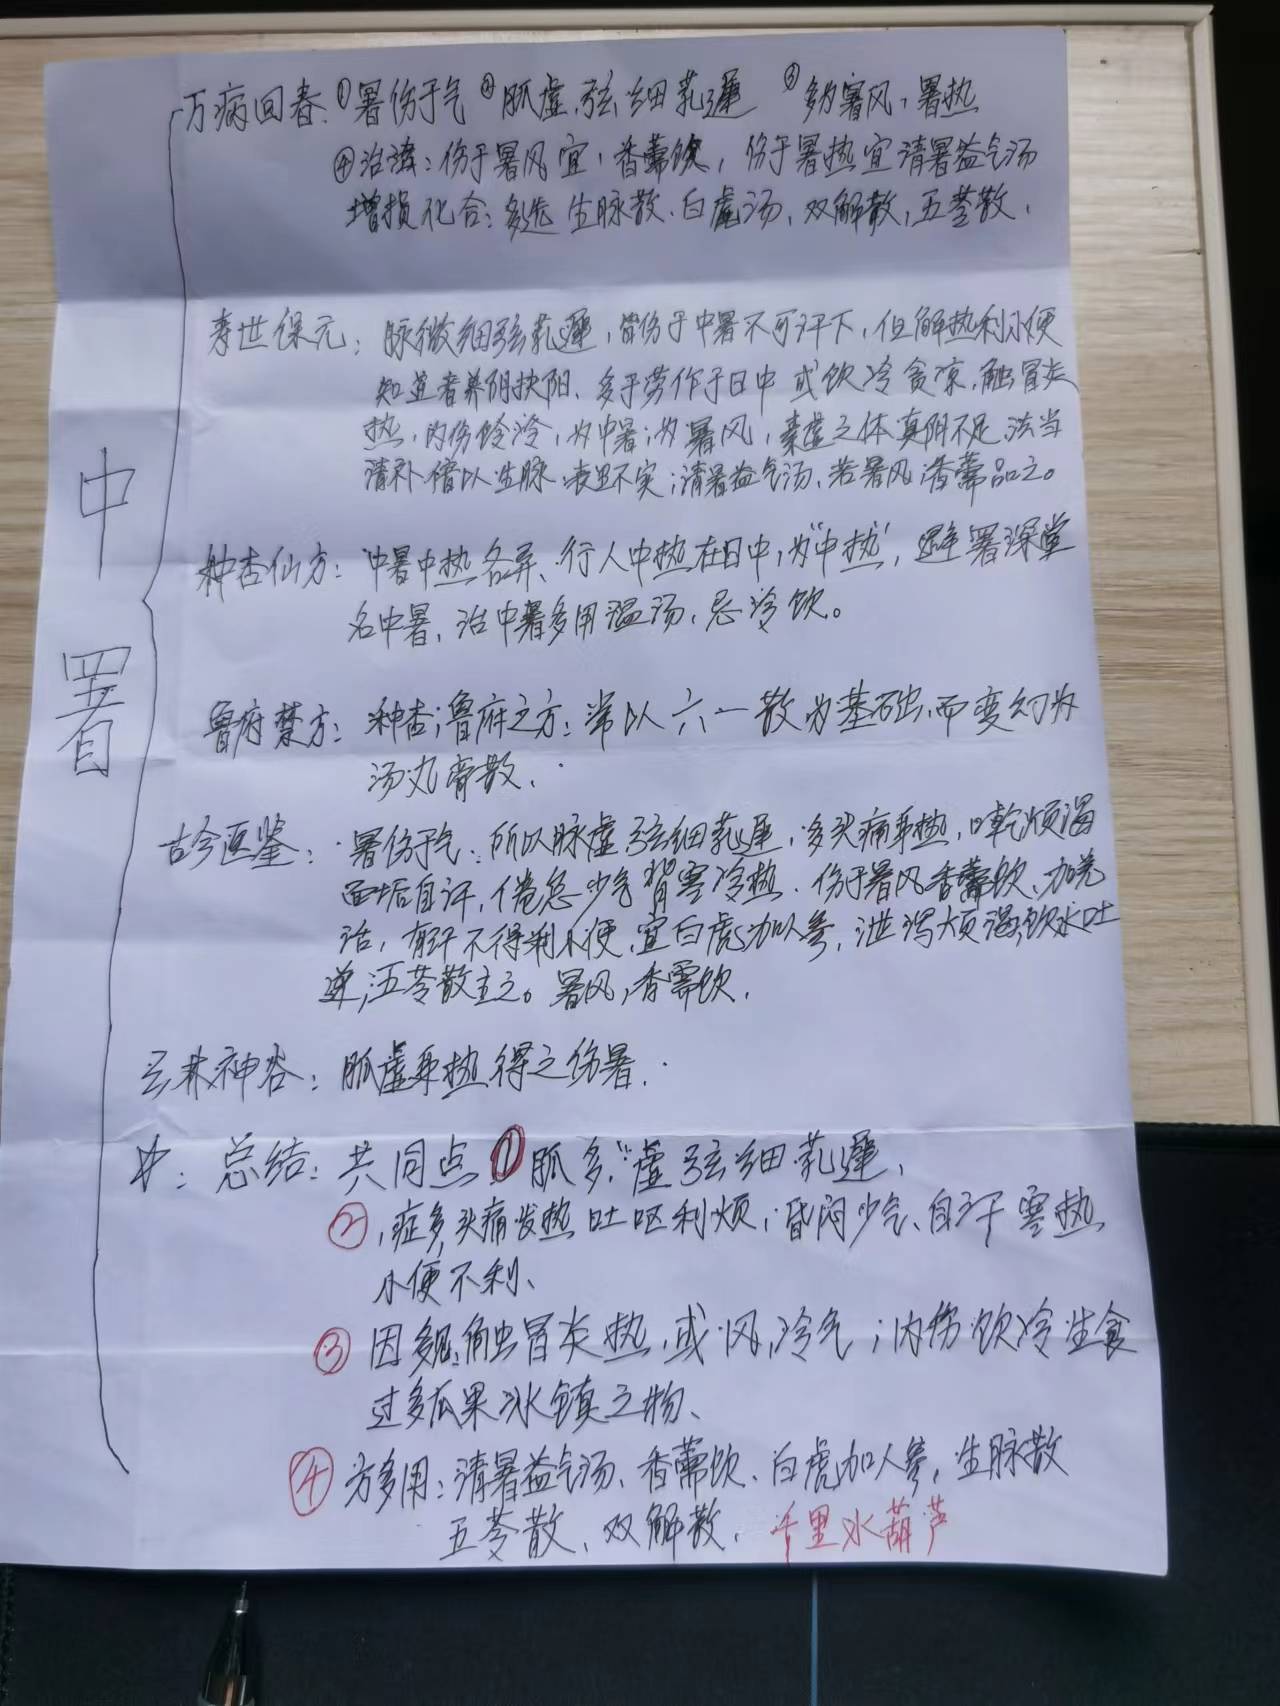 中暑
万病回春：①暑伤于气 ②脈虚弦细芤遲 ③多为暑风，暑热
④治法：伤于暑风宜，香薷饮，伤于暑热宜清暑益气汤
增损化合：多选 生脉散、白虎汤、双解散，五苓散，
寿世保元：脉微细弦芤遲，皆伤于中暑不可汗下，但解热利小便
知道者养阴扶阳、多于劳作于日中 或饮冷贪凉，触冒炎
热，内伤冷，为中暑；为暑风，素虚之体真阴不足 法当
清补借以生脉 表里不实；清暑益气汤、若暑风；香薷品之。
种杏仙方：中暑中热各异、行人中热在日中，为“中热”，避暑深堂
名中暑，治中暑多用温汤，忌冷饮。
鲁府禁方：种杏；鲁府之方：常以六一散为基础，而变幻为
汤丸膏散，
古今医鉴：暑伤于气、所以脉虚弦细芤遲，多头痛身热，口乾烦渴
面垢自汗，倦怠少气 背寒冷热、伤于暑风香薷饮、加羌
活，有汗不得利小便，宜白虎加人参，泄泻烦渴，饮水吐
逆；五苓散主之。暑风，香薷饮，
云林神谷：脈虚身热 得之伤暑、
中：总结：共同点①脈多“虚弦细芤遲，
②，症多，头痛发热 吐呕利烦；昏闷少气、自汗寒热
小便不利、
③因多，触冒炎热，或风，冷气；内伤饮冷生食
过多瓜果冰镇之物、
④方多用：清暑益气汤、香薷饮、白虎加人参，生脉散
五苓散、双解散，千里水葫芦